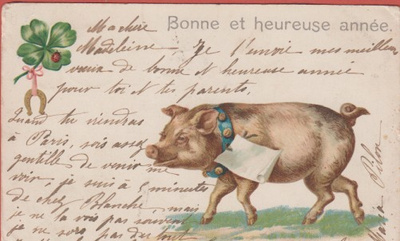 Bonne et heureuse année.
Ma chère
Madeleine, Je t'envoie mes meilleurs
vœux de bonne et heureuse année
pour toi et tes parents.
Quand tu viendras
à Paris, sois assez
gentille de venir me
voir, je suis à 5 minutes
de chez Blanche mais
je ne la vois pas souvent
je ne sors pas du tout
Maria Pilon